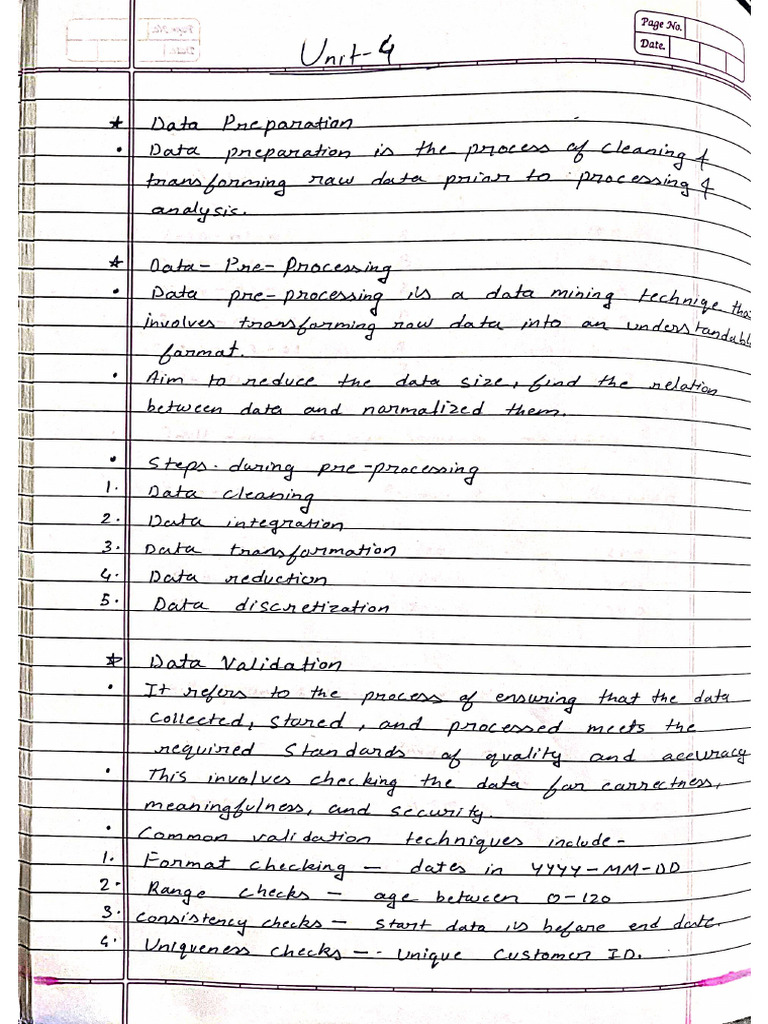 Page No.
Date.
Unit-4
* Data Preparation
• Data preparation is the process of cleaning &
transforming raw data prior to processing &
analysis.
* Data-Pre-Processing
• Data pre-processing is a data mining techniqe that
involves transforming raw data into an understandable
format.
• Aim to reduce the data size, find the relation
between data and normalized them.
• Steps during pre-processing
1. Data cleaning
2. Data integration
3. Data transformation
4. Data reduction
5. Data discretization
* Data Validation
• It refers to the process of ensuring that the data
collected, stored, and processed meets the
required standards of quality and accuracy
• This involves checking the data for correctness,
meaningfulness, and security.
• Common validation techniques include-
1. Format checking - dates in YYYY-MM-DD
2. Range checks - age between 0-120
3. Consistency checks - Start data is before end date.
4. Uniqueness checks - Unique Customer ID.